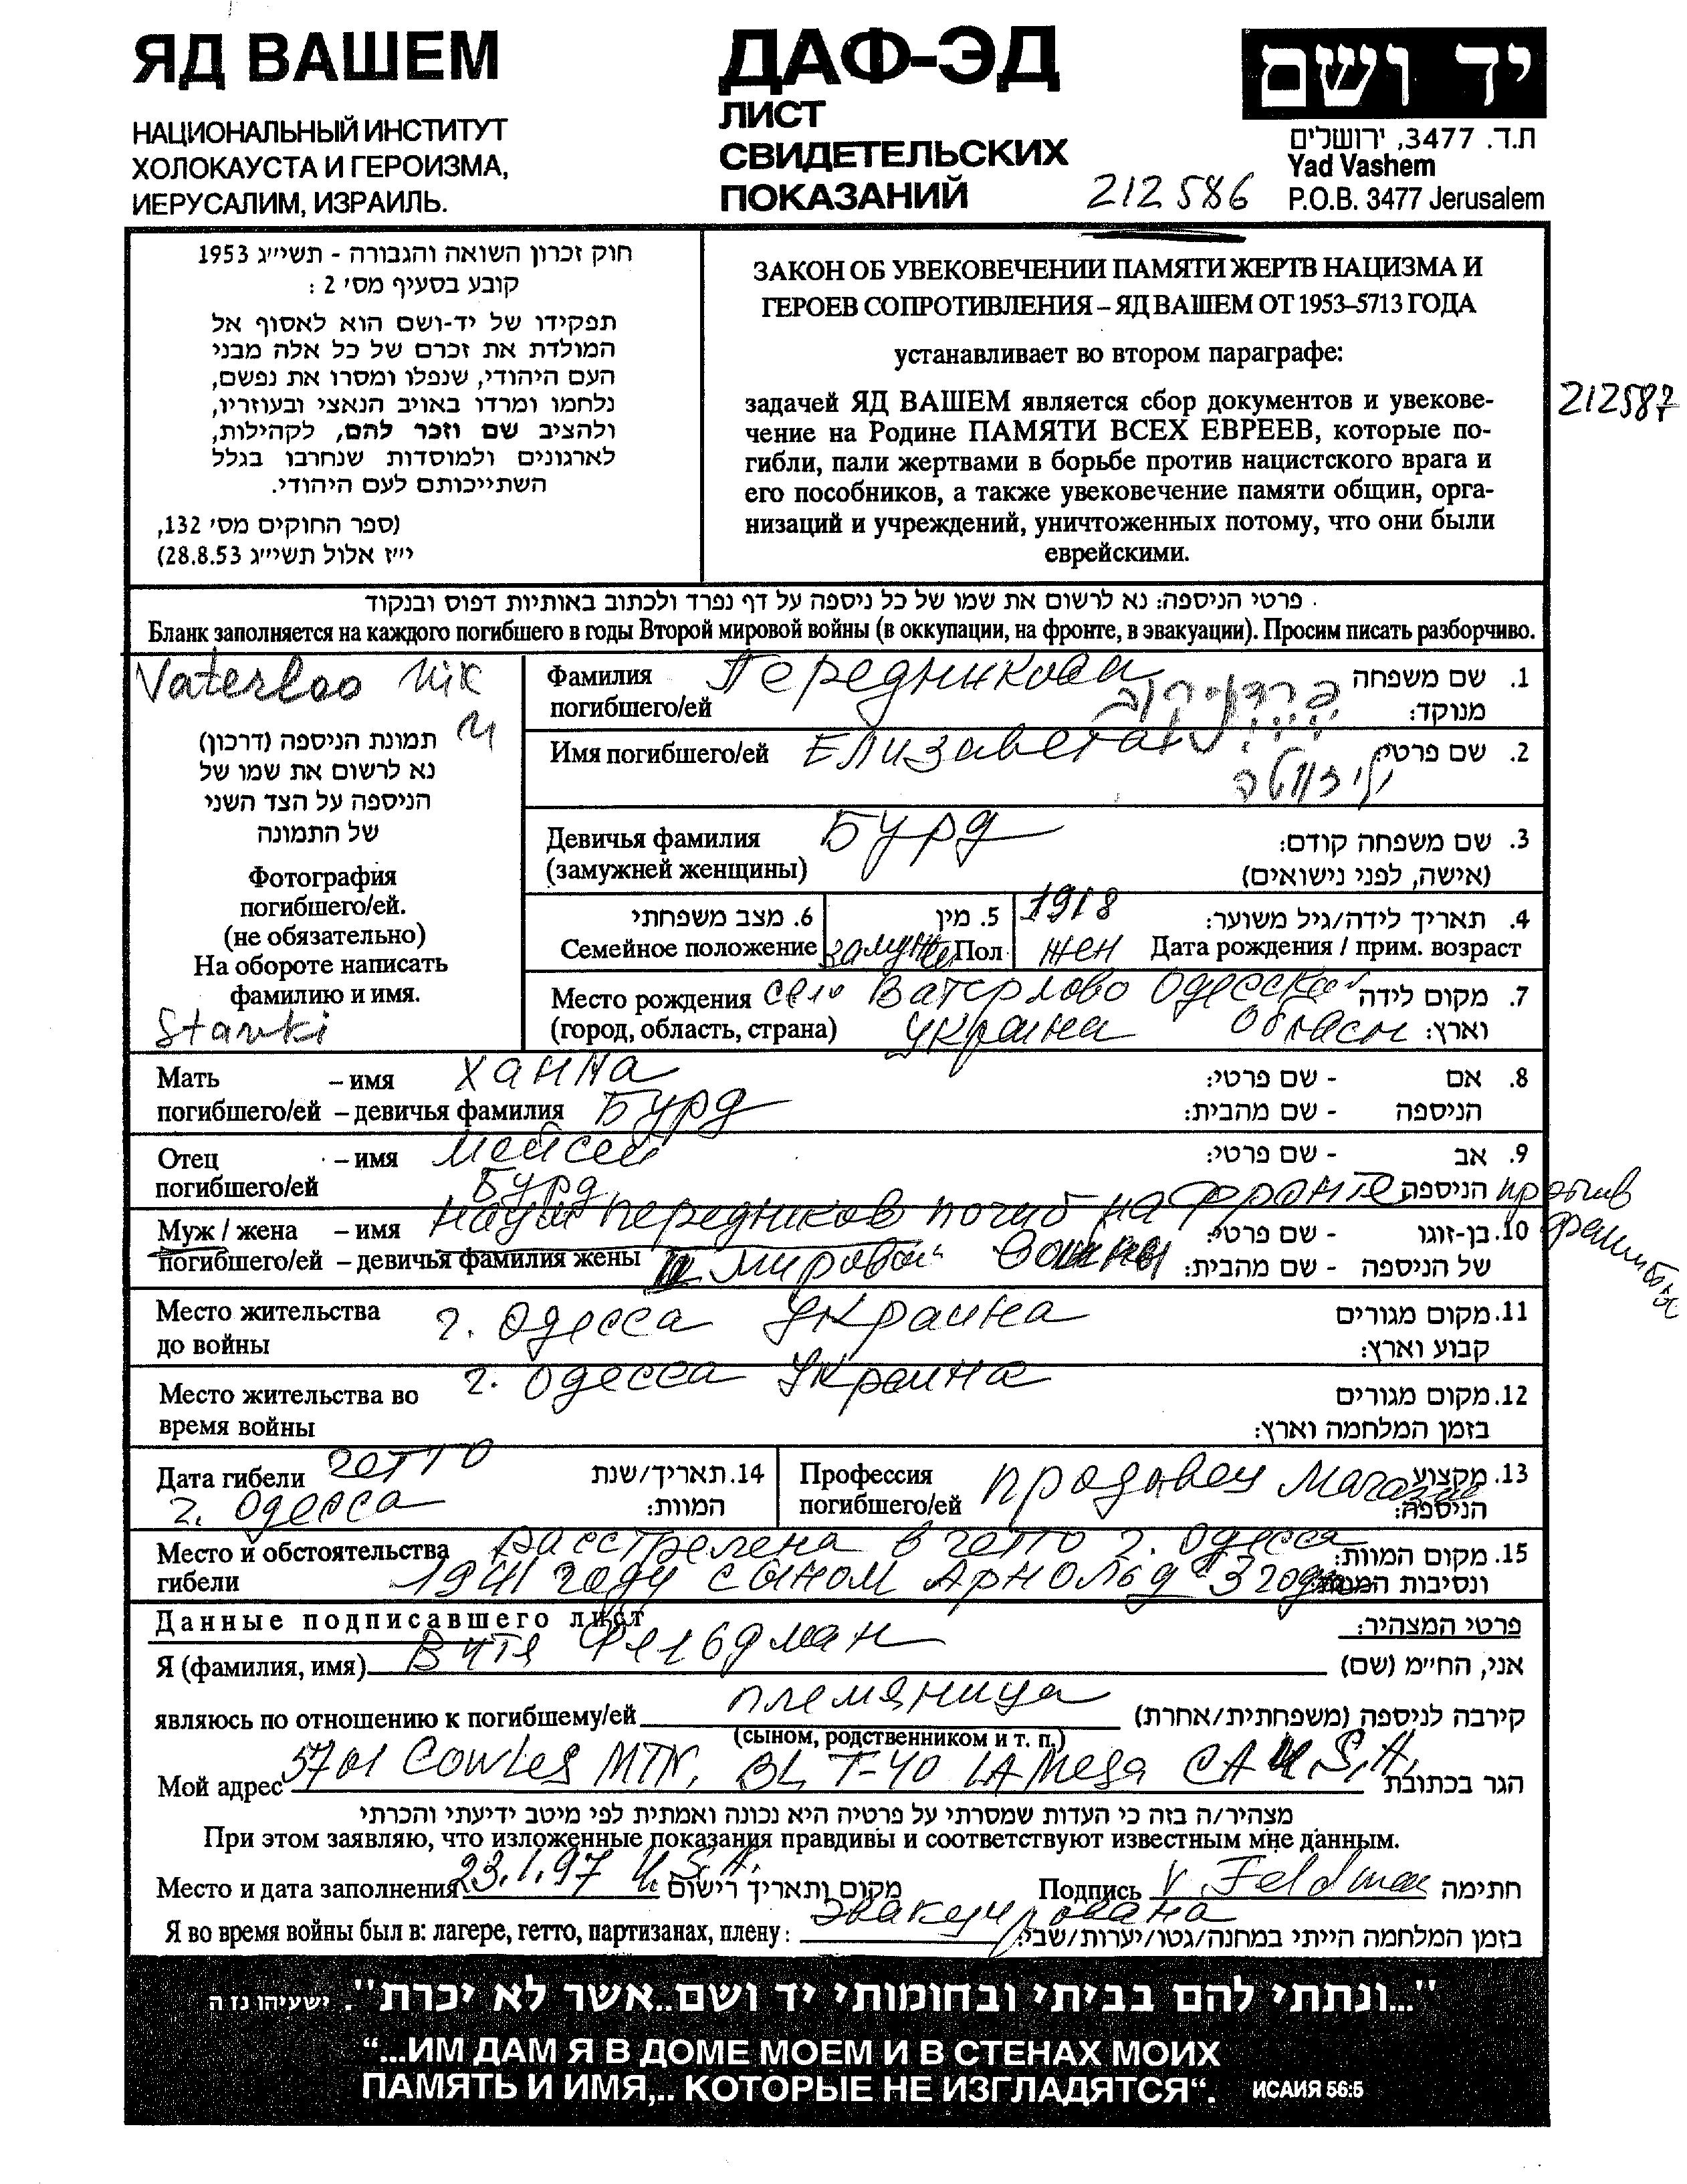 ЯД ВАШЕМ
НАЦИОНАЛЬНЫЙ ИНСТИТУТ
ХОЛОКАУСТА И ГЕРОИЗМА,
ИЕРУСАЛИМ, ИЗРАИЛЬ.
ДАФ-ЭД
ЛИСТ
СВИДЕТЕЛЬСКИХ
ПОКАЗАНИЙ
212586
יד ושם
ת.ד. 3477, ירושלים
Yad Vashem
P.O.B. 3477 Jerusalem
חוק זכרון השואה והגבורה - תשי״ג 1953
קובע בסעיף מס׳ 2 :
תפקידו של יד-ושם הוא לאסוף אל
המולדת את זכרם של כל אלה מבני
העם היהודי, שנפלו ומסרו את נפשם,
נלחמו ומרדו באויב הנאצי ובעוזריו,
ולהציב שם וזכר להם, לקהילות,
לארגונים ולמוסדות שנחרבו בגלל
השתייכותם לעם היהודי.
(ספר החוקים מס׳ 132,
י״ז אלול תשי״ג 28.8.53)
ЗАКОН ОБ УВЕКОВЕЧЕНИИ ПАМЯТИ ЖЕРТВ НАЦИЗМА И
ГЕРОЕВ СОПРОТИВЛЕНИЯ – ЯД ВАШЕМ ОТ 1953–5713 ГОДА
устанавливает во втором параграфе:
задачей ЯД ВАШЕМ является сбор документов и увекове-
чение на Родине ПАМЯТИ ВСЕХ ЕВРЕЕВ, которые по-
гибли, пали жертвами в борьбе против нацистского врага и
его пособников, а также увековечение памяти общин, орга-
низаций и учреждений, уничтоженных потому, что они были
еврейскими.
212587
פרטי הניספה: נא לרשום את שמו של כל ניספה על דף נפרד ולכתוב באותיות דפוס ובנקוד
Бланк заполняется на каждого погибшего в годы Второй мировой войны (в оккупации, на фронте, в эвакуации). Просим писать разборчиво.
Vaterloo Nik
תמונת הניספה (דרכון)
נא לרשום את שמו של
הניספה על הצד השני
של התמונה
Фотография
погибшего/ей.
(не обязательно)
На обороте написать
фамилию и имя.
Stavki
Фамилия Передникова 1. שם משפחה
погибшего/ей מנוקד:
Имя погибшего/ей Елизавета 2. שם פרטי
Девичья фамилия Бурд 3. שם משפחה קודם:
(замужней женщины) (אישה, לפני נישואים)
6. מצב משפחתי 5. מין 1918 4. תאריך לידה/גיל משוער:
Семейное положение замуже Пол жен Дата рождения / прим. возраст
Место рождения село Ватерлово Одесской 7. מקום לידה
(город, область, страна) Украина Област וארץ:
Мать – имя Ханна 8. אם - שם פרטי:
погибшего/ей – девичья фамилия Бурд הניספה - שם מהבית:
Отец – имя Мейсей 9. אב - שם פרטי:
погибшего/ей Бурд הניספה
Муж / жена – имя Наум Передников погиб на фронте против 10. בן-זוגו - שם פרטי:
погибшего/ей – девичья фамилия жены II мировой Войны של הניספה - שם מהבית:
Место жительства г. Одесса Украина 11. מקום מגורים
до войны קבוע וארץ:
Место жительства во г. Одесса Украина 12. מקום מגורים
время войны בזמן המלחמה וארץ:
Дата гибели гетто 14. תאריך/שנת
г. Одесса המוות:
Профессия продавец 13. מקצוע
погибшего/ей הניספה:
Место и обстоятельства Расстрелена в гетто г. Одесса 15. מקום המוות:
гибели 1941 году с сыном Арнольд 3 года ונסיבות המוות:
Данные подписавшего лист פרטי המצהיר:
Я (фамилия, имя) Витя Фельдман אני, הח״מ (שם)
являюсь по отношению к погибшему/ей племяница קירבה לניספה (משפחתית/אחרת)
(сыном, родственником и т. п.)
Мой адрес 5701 Cowles MTN, BL, T-40 LA Mesa CA U.S.A. הגר בכתובת
מצהיר/ה בזה כי העדות שמסרתי על פרטיה היא נכונה ואמתית לפי מיטב ידיעתי והכרתי
При этом заявляю, что изложенные показания правдивы и соответствуют известным мне данным.
Место и дата заполнения 23.1.97 U.S.A. מקום ותאריך רישום Подпись V. Feldman חתימה
Я во время войны был в: лагере, гетто, партизанах, плену: эвакуирована בזמן המלחמה הייתי במחנה/גטו/יערות/שבי:
"...ונתתי להם בביתי ובחומותי יד ושם..אשר לא יכרת". ישעיהו נו ה
“...ИМ ДАМ Я В ДОМЕ МОЕМ И В СТЕНАХ МОИХ
ПАМЯТЬ И ИМЯ,.. КОТОРЫЕ НЕ ИЗГЛАДЯТСЯ“. ИСАИЯ 56:5